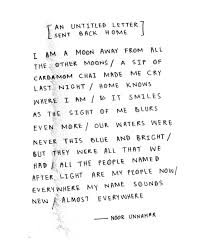 [ AN UNTITLED LETTER
SENT BACK HOME ]
I AM A MOON AWAY FROM ALL
THE OTHER MOONS / A SIP OF
CARDAMOM CHAI MADE ME CRY
LAST NIGHT / HOME KNOWS
WHERE I AM / SO IT SMILES
AS THE SIGHT OF ME BLURS
EVEN MORE / OUR WATERS WERE
NEVER THIS BLUE AND BRIGHT /
BUT THEY WERE ALL THAT WE
HAD / ALL THE PEOPLE NAMED
AFTER LIGHT ARE MY PEOPLE NOW /
EVERYWHERE MY NAME SOUNDS
NEW / ALMOST EVERYWHERE
— NOOR UNNAHAR